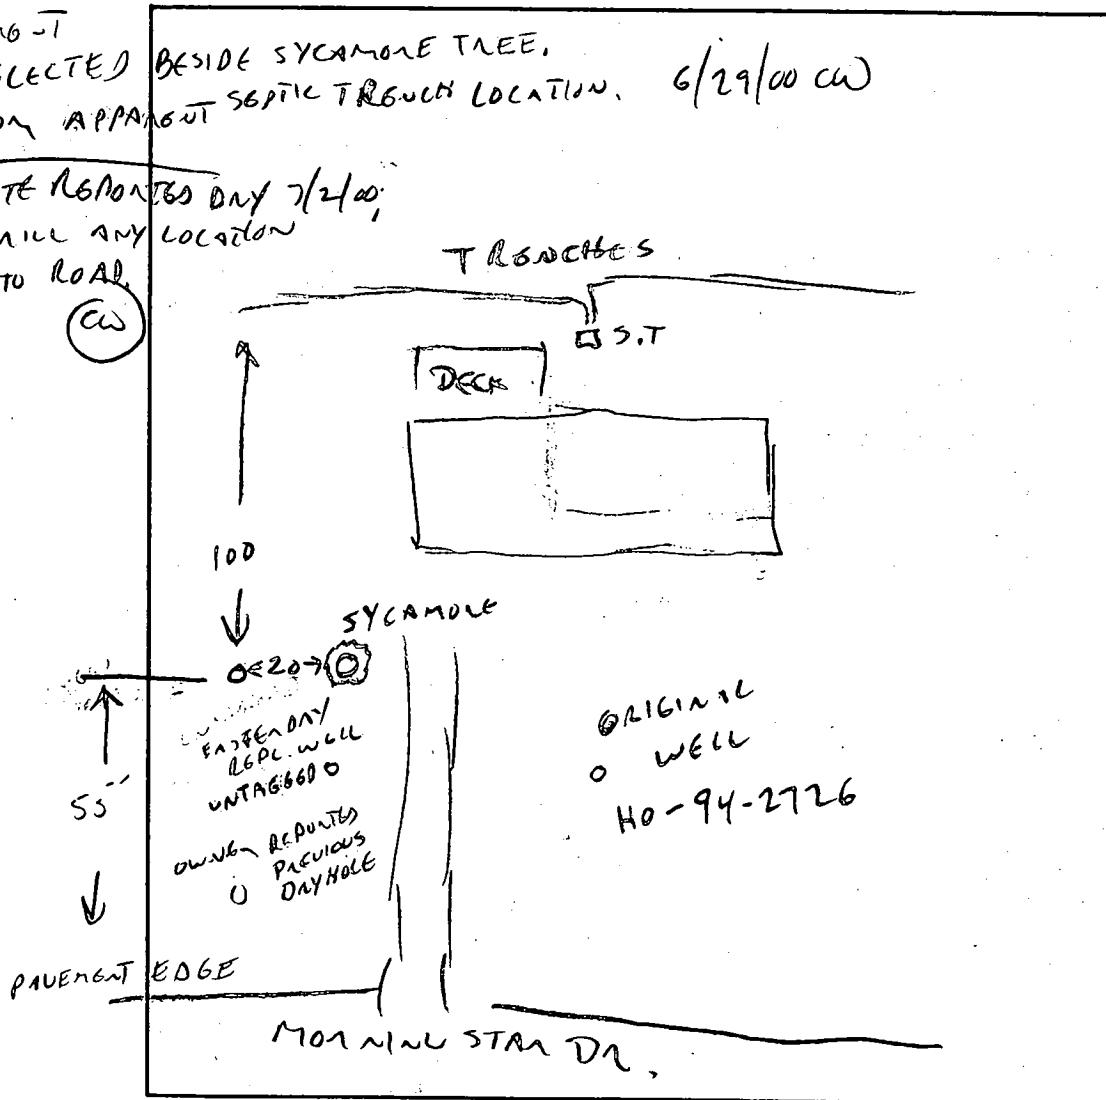 LECTED BESIDE SYCAMORE TREE.
APPARENT SEPTIC TRENCH LOCATION. 6/29/00 CW
TE REPORTED DRY 7/2/00;
RILL ANY LOCATION
TO ROAD.
CW
TRENCHES
S.T
DECK
100
SYCAMORE
20
EASTERDAY
REPL. WELL
UNTAGGED
ORIGINAL
WELL
HO-94-2726
55'
OWNER REPORTED
PREVIOUS
DRYHOLE
PAVEMENT EDGE
MORNING STAR DR.